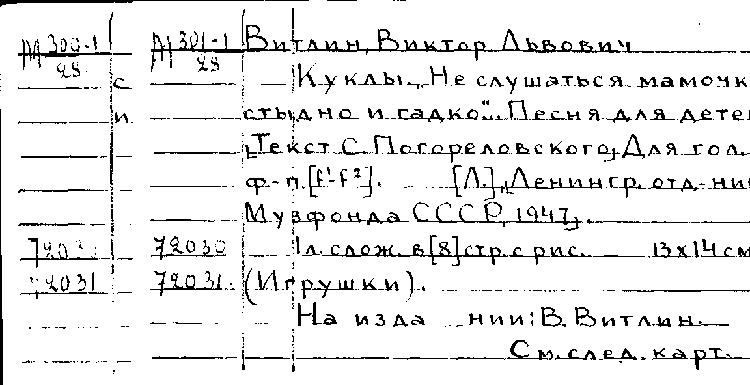 М 300-1/28 М 301-1/28 Витлин, Виктор Львович
с Куклы. „Не слушаться мамочк
и стыдно и гадко". Песня для дете
Текст С. Погореловского, Для гол.
ф-п. [f¹-f²]. [Л.], Ленингр. отд-ни
Музфонда СССР, 1947.
72030 72030 1 л. слож. в [8] стр. с рис. 13х14 см
72031 72031. (Игрушки).
На изда нии: В. Витлин.
См. след. карт.